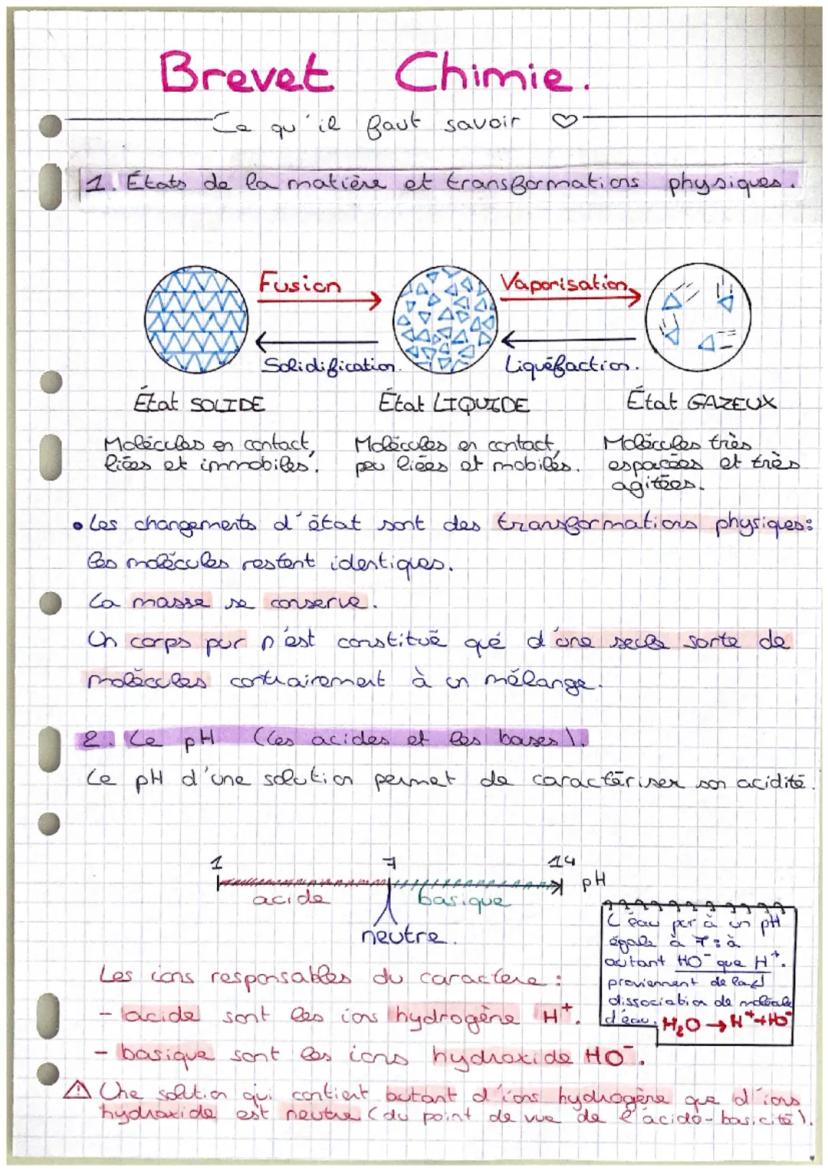 Brevet Chimie.
Ce qu'il faut savoir ♡
1. États de la matière et transformations physiques.
Fusion
Vaporisation
Solidification
Liquéfaction.
État SOLIDE
État LIQUIDE
État GAZEUX
Molécules en contact,
liées et immobiles.
Molécules en contact,
peu liées et mobiles.
Molécules très
espacées et très
agitées.
• Les changements d'état sont des transformations physiques:
les molécules restent identiques.
La masse se conserve.
Un corps pur n'est constitué qué d'une seule sorte de
molécules contrairement à un mélange.
2. Le pH (les acides et les bases).
Le pH d'une solution permet de caractériser son acidité.
1 7 14
pH
acide
basique
neutre.
L'eau pur à un pH
égale à 7 : à
autant HO⁻ que H⁺.
proviennent de la
dissociation de molécule
d'eau. H₂O → H⁺+HO⁻
Les ions responsables du caractere :
- acide sont les ions hydrogène H⁺.
- basique sont les ions hydroxide HO⁻.
⚠ Une solution qui contient autant d'ions hydrogène que d'ions
hydroxide est neutre (du point de vue de l'acido-basicité).